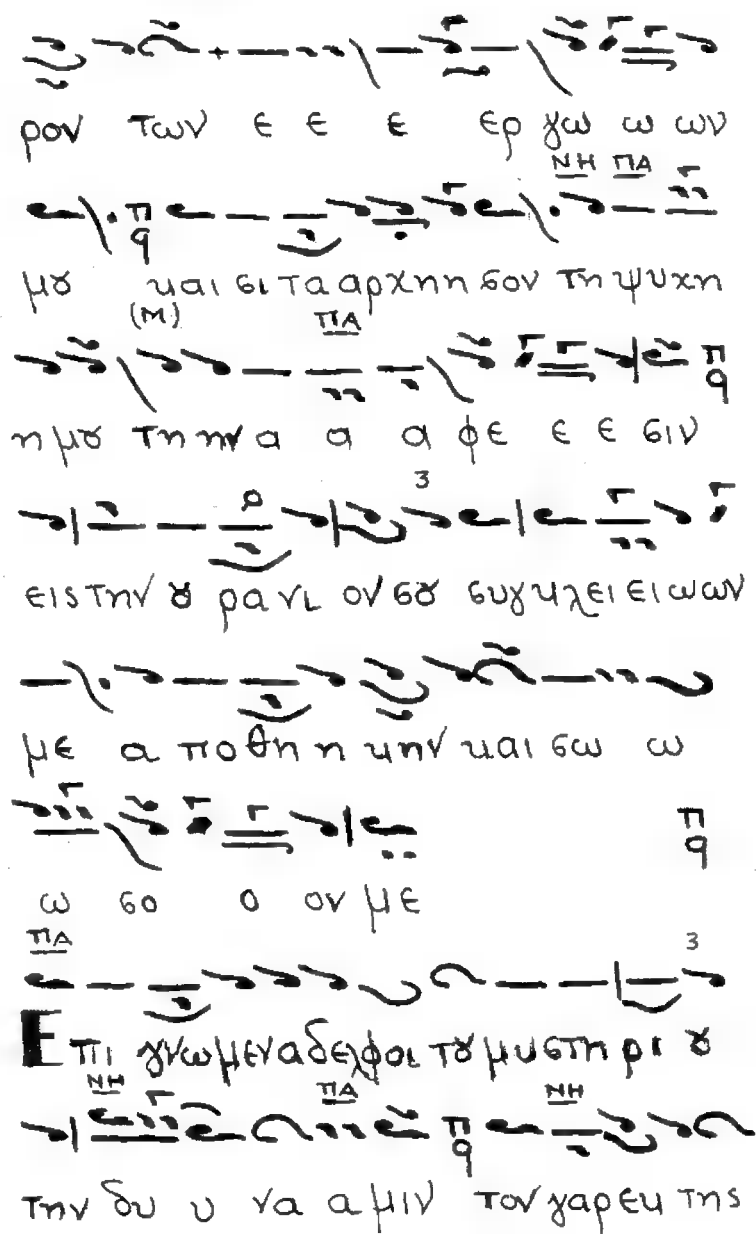 ρον των ε ε ε ερ γω ω ων
ΝΗ ΠΑ
π
q
μȣ και σι τα αρχη η σον τη ψυχη
(Μ) ΠΑ
π
q
η μȣ τη ην α α α φε ε ε σιν
3
εις την ȣ ρα νι ον σȣ συγ κλει ει ω ων
με α πο θη η κην και σω ω
π
q
ω σο ο ον με
ΠΑ 3
Ε πι γνω μεν α δελ φοι τȣ μυ στη ρι ȣ
ΝΗ ΠΑ ΝΗ
π
q
την δυ υ να α μιν τον γαρ εκ της